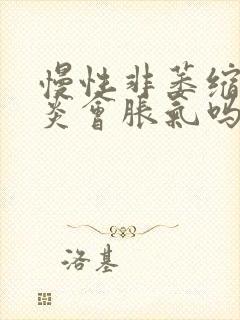 慢性非萎缩
炎会胀氣吗
洛基